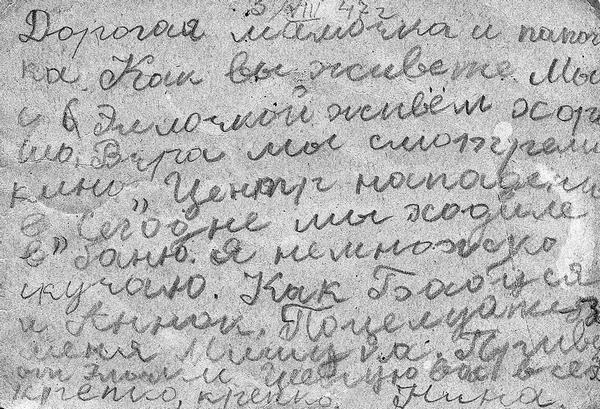 3 VIII 42 г
Дорогая мамочка и папоч
ка. Как вы живете. Мы
с Эллочкой живём хоро
шо. Вчра мы смотрели
кино "Центр нападени
я" Сегодне мы ходиле
в баню. Я немножко
скучаю. Как Бабуся
и Аннок. Поцелуйте
меня Мишука.
от Целую вас всех
крепко, крепко. Нина.